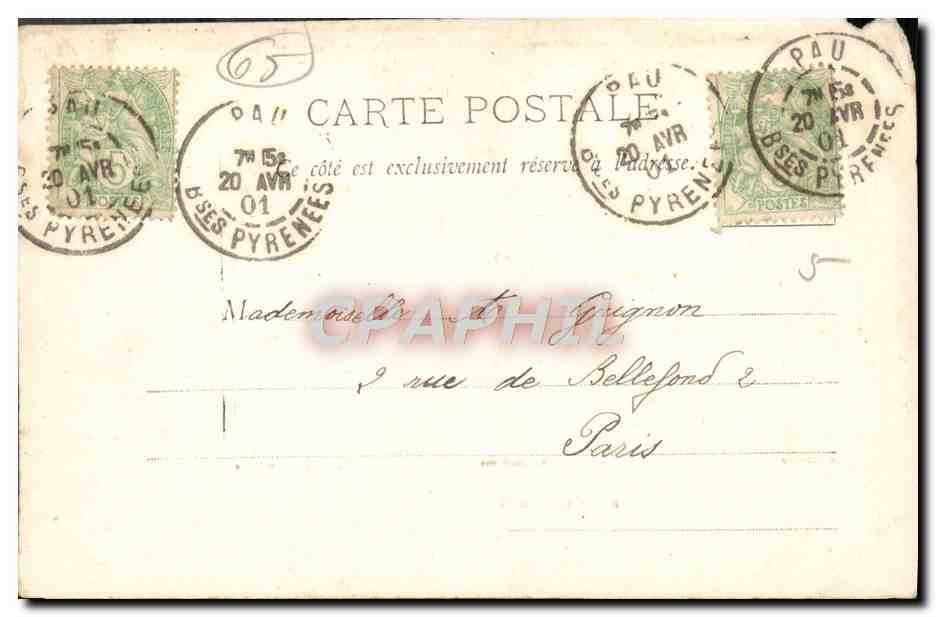 65
CARTE POSTALE
Ce côté est exclusivement réservé à l'adresse.
PAU
7M 15
20 AVR
01
BSES PYRENEES
PAU
7M 15
20 AVR
01
BSES PYRENEES
PAU
20 AVR
01
BSES PYRENEES
PAU
7M 15
20 AVR
01
BSES PYRENEES
POSTES
5
Mademoiselle de Guignon
2 rue de Bellefond 2
Paris
CPAPHIL